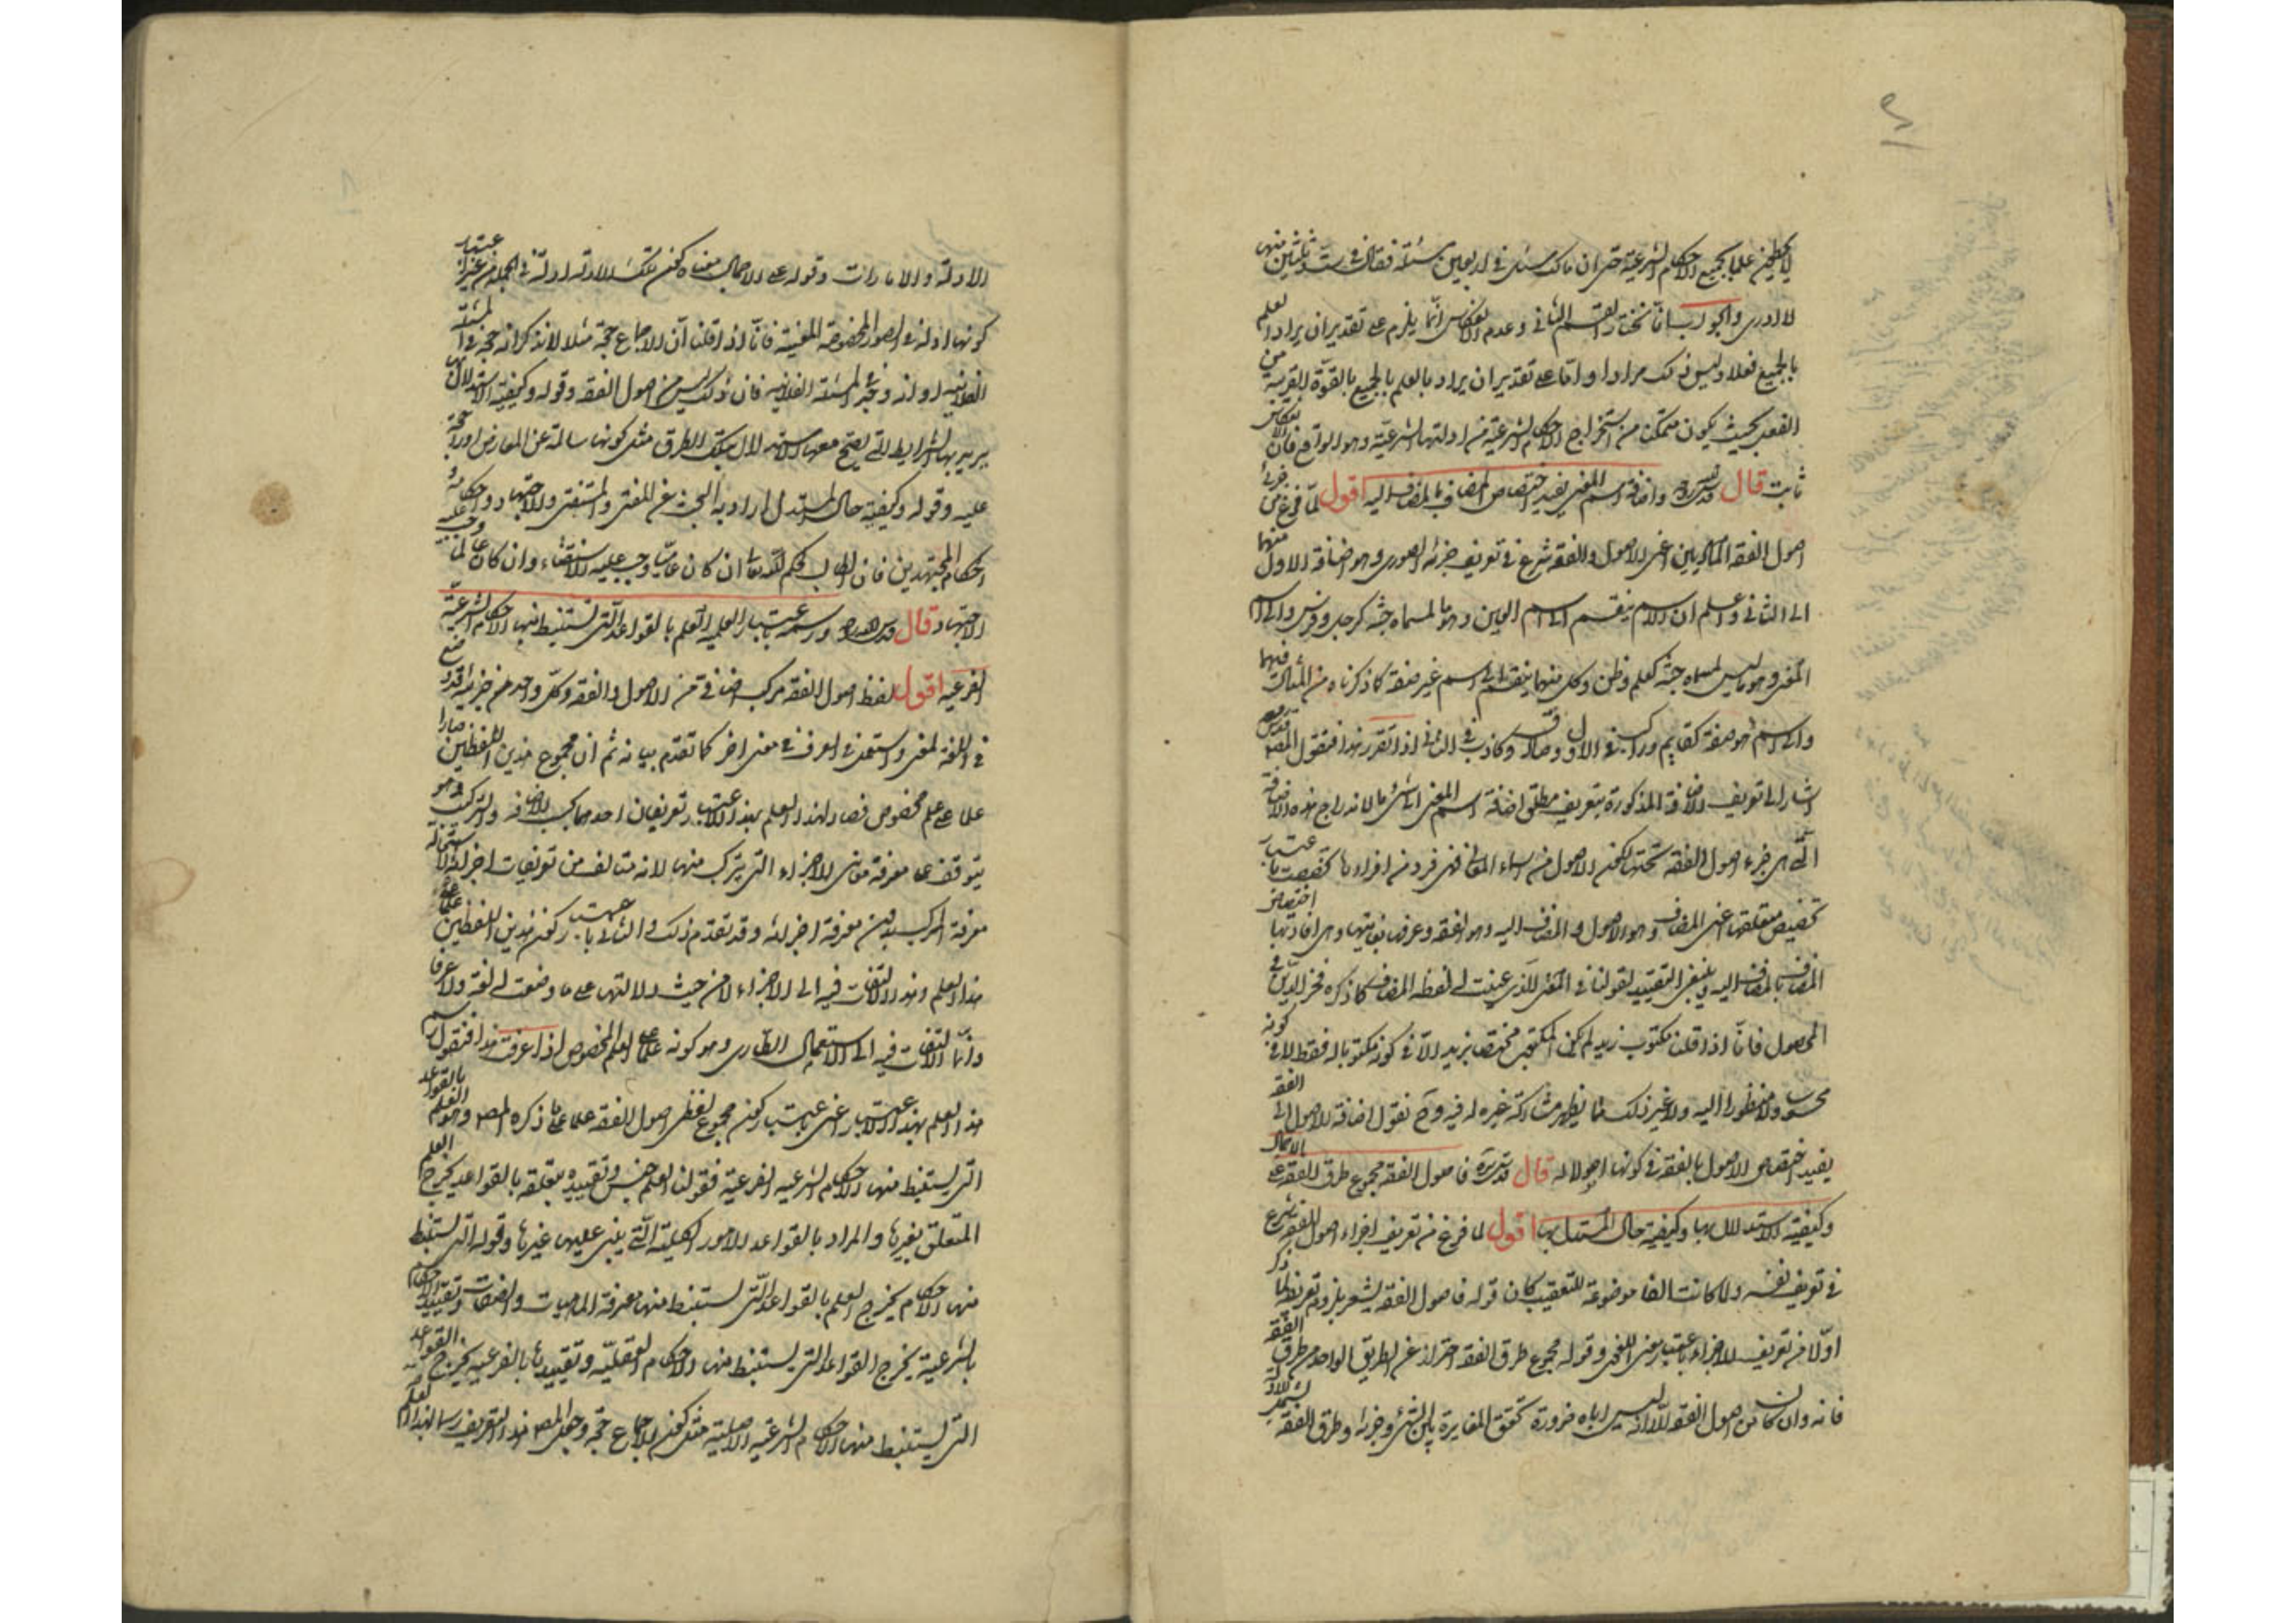 لا يحيطون علما بجميع الاحكام الشرعية حتى ان مالك سئل في اربعين مسئلة فقال في ست وثلثين منها
لا ادري والجواب انا نختار القسم الثاني وعدم الانعكاس انما يلزم على تقدير ان يراد العلم
بالجميع فعلا وليس ذلك مرادا واما على تقدير ان يراد بالعلم بالجميع بالقوة القريبة من
الفعل بحيث يكون متمكن من استخراج الاحكام الشرعية من ادلتها الشرعية وهو الواقع فان الانعكاس
ثابت قال قدس سره واضافة اسم المعنى يفيد اختصاص المضاف بالمضاف اليه اقول لما فرغ من جزئي
اصول الفقه الماديين اعني الاصول والفقه شرع في تعريف جزئه الصوري وهو اضافة الاول منهما
الى الثاني واعلم ان الاسم ينقسم الى اسم العين وهو ما لمسماه جثة كرجل وفرس والى اسم
المعنى وهو ما ليس لمسماه جثة كعلم وظن وكل منهما ينقسم الى اسم غير صفة كما ذكرناه من المثال فيهما
والى اسم هو صفة كقايم وراكب في الاول وصادق وكاذب في الثاني اذا تقرر هذا فنقول المص قدس سره
اشار الى تعريف الاضافة المذكورة بتعريف مطلق اضافة اسم المعنى الى شيء ما لاندراج هذه الاضافة
التي هي جزء اصول الفقه تحتها لكون الاصول من اسماء المعاني فهي فرد من افرادها تخصصت باعتبار
تخصيص متعلقها اعني المضاف وهو الاصول والمضاف اليه وهو الفقه وعرض بغايتها وهي افادتها اختصاص
المضاف بالمضاف اليه وينبغي التقييد لقولنا في المعنى الذي عينت له لفظة المضاف كما ذكره فخر الدين في
المحصول فانا اذا قلنا مكتوب زيد لم يكن المكتوب مختص بزيد الا في كونه مكتوبا له فقط لا في كونه
محسوسا ولا منظورا اليه ولا غير ذلك مما يظهر مشاركة غيره له فيه وح نقول اضافة الاصول الى الفقه
يفيد اختصاص الاصول بالفقه في كونها اصولا له قال قدس سره فاصول الفقه مجموع طرق الفقه على الاجمال
وكيفية الاستدلال بها وكيفية حال المستدل بها اقول لما فرغ من تعريف اجزاء اصول الفقه شرع
في تعريف نفسه ولما كانت الفا موضوعة للتعقيب كان قوله فاصول الفقه يشعر بلزوم تعريفه لما ذكر
اولا من تعريف الاجزاء باعتبار معنى اللغوي وقوله مجموع طرق الفقه احتراز عن الطريق الواحد من طرق الفقه
فانه وان كان من اصول الفقه الا انه ليس اياه ضرورة تحقق المغايرة بين الشيء وجزئه وطرق الفقه يشمل
الادلة والامارات وقوله على الاجمال معناه كون تلك الادلة ادلة في الجملة من غير اعتبار
كونها ادلة في الصور المخصوصة المعينة فانا اذا قلنا ان الاجماع حجة مثلا لا نذكر انه حجة في المسئلة
الفلانية او انه وجد في المسئلة الفلانية فان ذلك ليس من اصول الفقه وقوله وكيفية الاستدلال بها
يريد بها الشرايط التي يصح معها الاستدلال بتلك الطرق مثل كونها سالمة عن المعارض او راجحة
عليه وقوله وكيفية حال المستدل اراد به البحث عن المفتي والمستفتي والاجتهاد واحكامه
احكام المجتهدين فان الطالب لحكم الله تعالى ان كان عاميا وجب عليه الاستفتاء وان كان عالما وجب عليه
الاجتهاد قال قدس سره ورسمه باعتبار العلمية العلم بالقواعد التي تستنبط منها الاحكام الشرعية
الفرعية اقول لفظ اصول الفقه مركب اضافي من الاصول والفقه وكل واحد من جزئيه قد وضع
في اللغة لمعنى واستعمل في العرف في معنى اخر كما تقدم بيانه ثم ان مجموع هذين اللفظين صارا
علما على علم مخصوص فصار لهذا العلم بهذا الاعتبار تعريفان احدهما بحسب الاضافة والتركيب وهو
يتوقف على معرفة معاني الاجزاء التي تركب منها لانه متالف من تعريفات اجزائه لاستحالة
معرفة المركب بدون معرفة اجزائه وقد تقدم ذلك والثاني باعتبار كون هذين اللفظين علما على
هذا العلم وهذا لا التفات فيه الى الاجزاء لا من حيث دلالتها على ما وضعت له لغة ولا عرفا
وانما الالتفات فيه الى الاستعمال الطاري وهو كونه علما على العلم المخصوص اذا عرفت هذا فنقول رسم
هذا العلم بهذا الاعتبار اعني باعتبار كون مجموع لفظي اصول الفقه علما على ما ذكره المص وهو العلم بالقواعد
التي يستنبط منها الاحكام الشرعية الفرعية فقولنا العلم جنس وتقييده بتعلقه بالقواعد يخرج العلم
المتعلق بغيرها والمراد بالقواعد الامور الكلية التي يبنى عليها غيرها وقوله التي تستنبط
منها الاحكام يخرج العلم بالقواعد التي تستنبط منها معرفة الماهيات والصفات وتقييد الاحكام
بالشرعية يخرج القواعد التي يستنبط منها الاحكام العقلية وتقييدها بالفرعية يخرج القواعد
التي يستنبط منها الاحكام الشرعية الاصلية مثل كون الاجماع حجة وجعل المص هذا التعريف رسما لهذا العلم